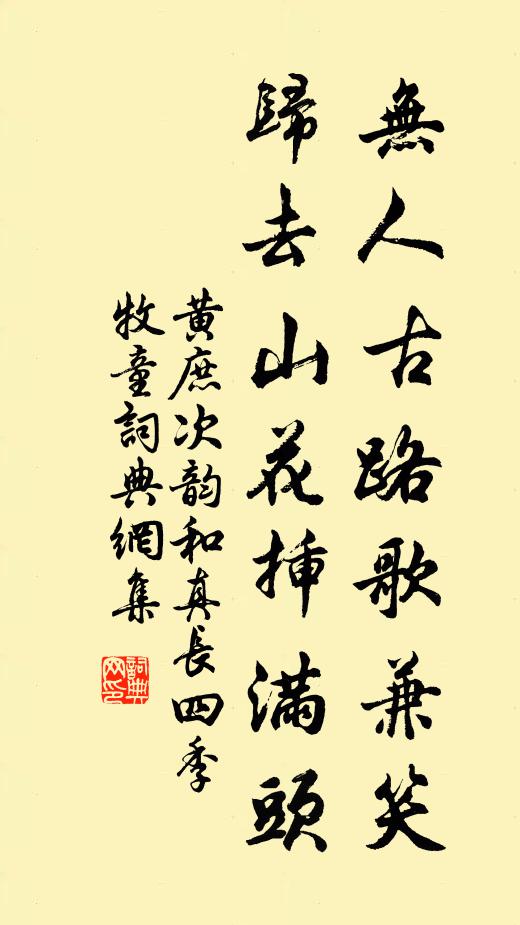 無人古路歌兼笑
歸去山花插滿頭
黄庶次韵和真長四季
牧童詞典網集
詞典網印